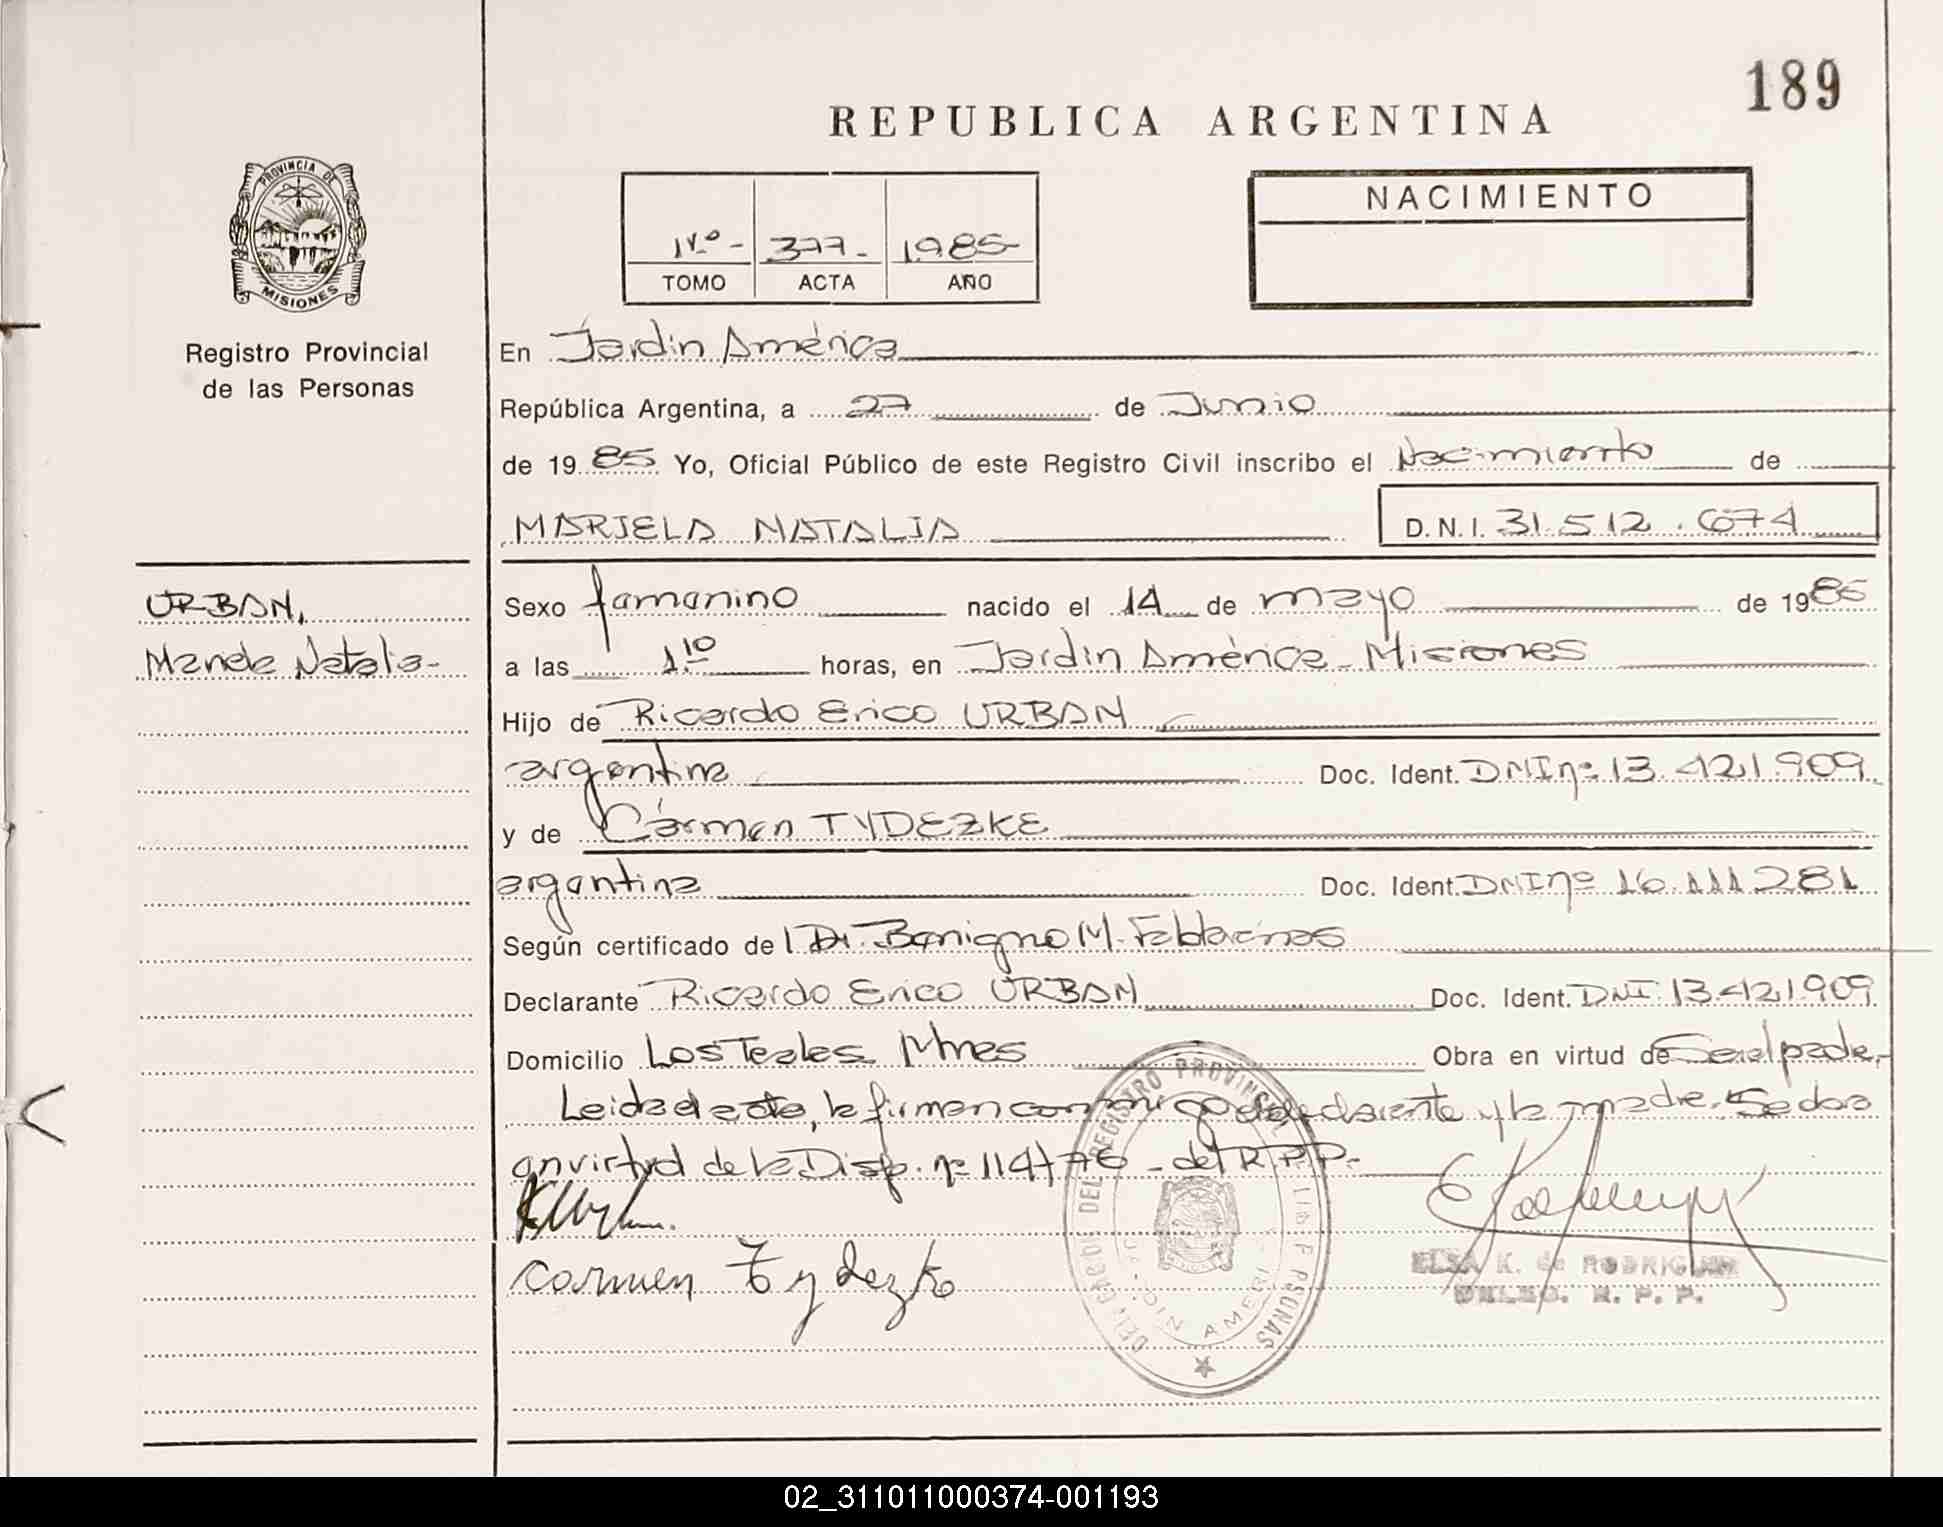 189
REPUBLICA ARGENTINA
PROVINCIA DE
MISIONES
Registro Provincial
de las Personas
Iº - 377 - 1985
TOMO ACTA AÑO
NACIMIENTO
En Jardin América
República Argentina, a 27 de Junio
de 1985 Yo, Oficial Público de este Registro Civil inscribo el Nacimiento de
MARIELA NATALIA D.N.I. 31.512.674
URBAN,
Mariela Natalia-
Sexo femenino nacido el 14 de mayo de 1985
a las 1 10 horas, en Jardin América - Misiones
Hijo de Ricardo Erico URBAN
argentina Doc. Ident. DNI nº 13.421.909
y de Cármen TYDEZKE
argentina Doc. Ident. DNI nº 16.111.281
Según certificado de Dr. Benigno M.
Declarante Ricardo Erico URBAN Doc. Ident. DNI 13.421.909
Domicilio Los Teales Mnes Obra en virtud de Ser el padre.-
Leida el acta, la firman conmigo el declarante y la madre. Se
en virtud de la Disp. nº 114/76 - del R.P.P.-
Carmen Tydezke
ELSA K. de RODRIGUEZ
DELEG. R. P. P.
02_311011000374-001193